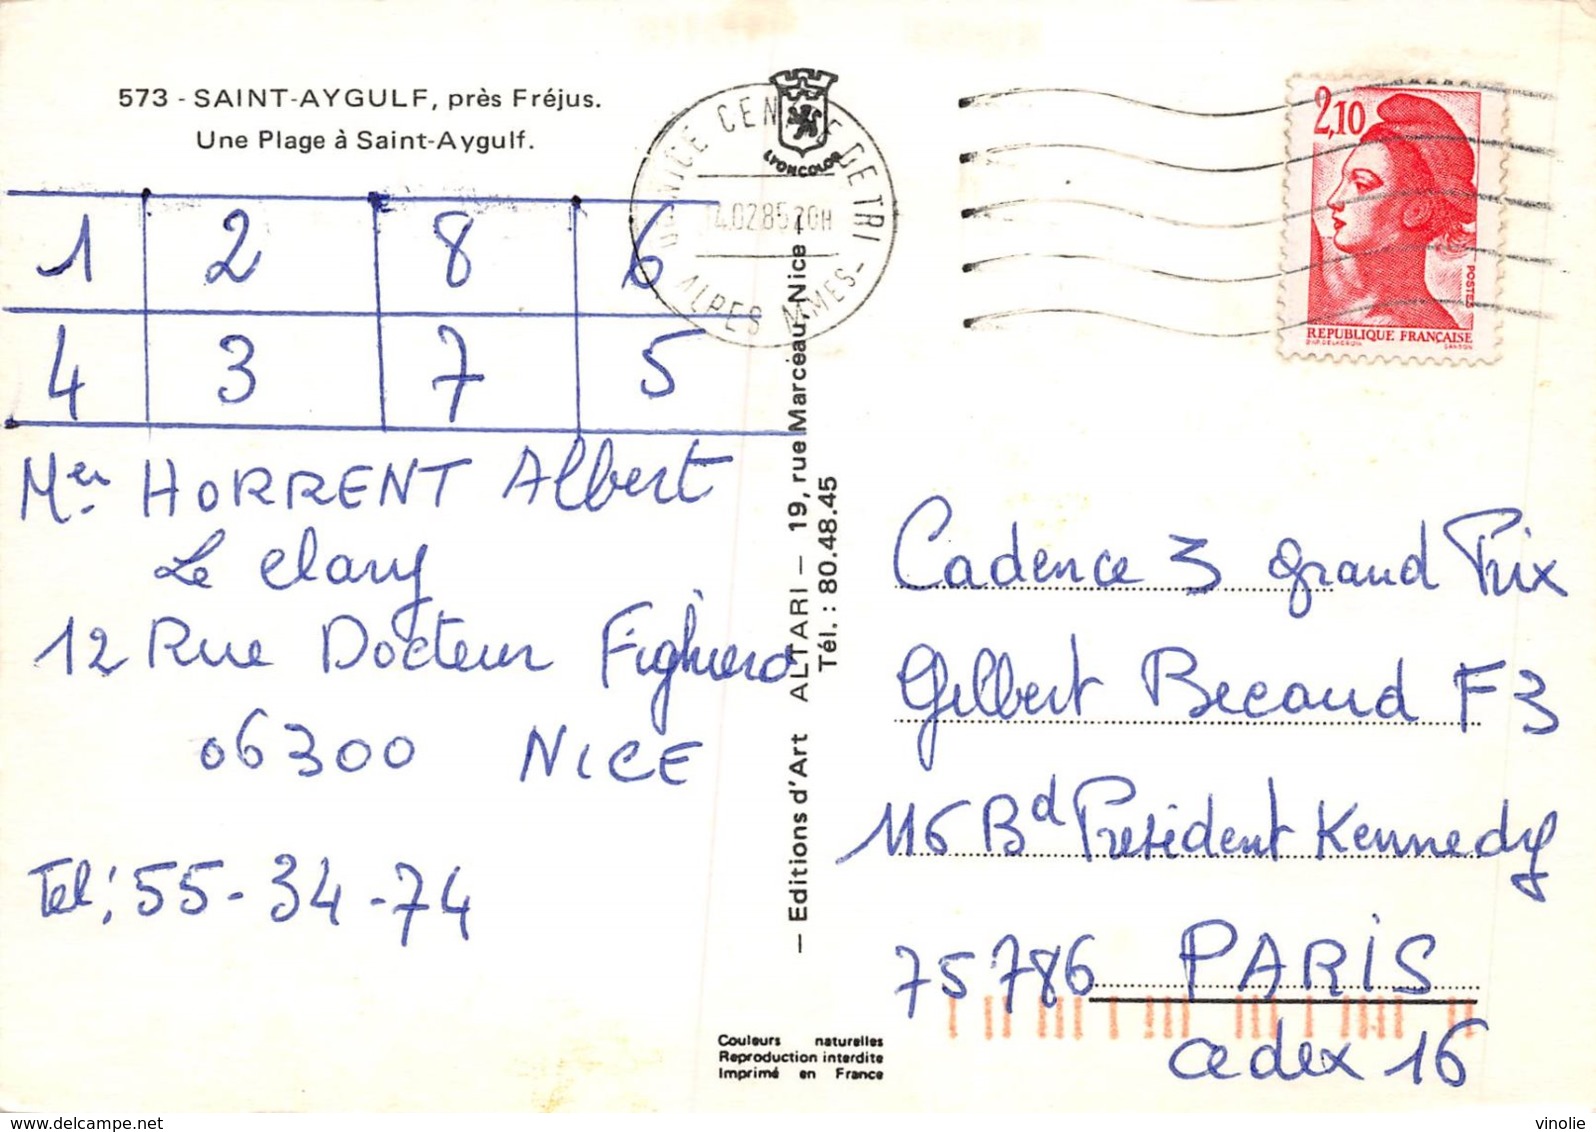 573 - SAINT-AYGULF, près Fréjus.
Une Plage à Saint-Aygulf.
1 2 8 6
4 3 7 5
Mer HORRENT Albert
Le Clany
12 Rue Docteur Fighiera
06300 NICE
Tel: 55-34-74
NICE CENTRE DE TRI
4.02.85 20H
ALPES MMES
LYONCOLOR
— Editions d'Art ALTARI — 19, rue Marceau, Nice —
Tél. : 80.48.45
Couleurs naturelles
Reproduction interdite
Imprimé en France
2,10
POSTES
REPUBLIQUE FRANÇAISE
D'AP. DELACROIX GANDON
Cadence 3 grand Prix
Gilbert Becaud F3
116 Bd President Kennedy
75786 PARIS
cedex 16
vinolie